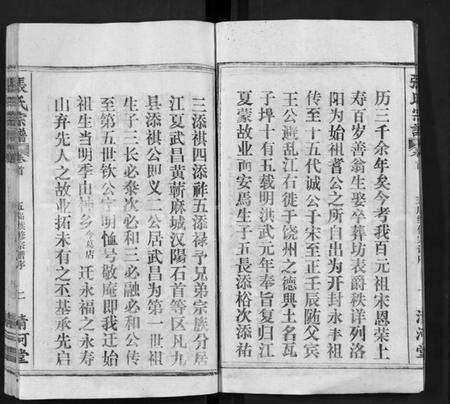 历三千余年矣今考我百元祖宋恩荣上
寿百岁善翁生娶卒葬坊表爵秩详列洛
阳为始祖耆公之所自出为开封永丰祖
传至十五代诚公于宋至正壬辰随父宾
王公避乱江右徙于饶州之德兴土名瓦
子垾十有五载明洪武元年奉旨复归江
夏蒙故业而安焉生子五长添裕次添祐
三添祺四添祚五添禄予兄弟宗族分居
江夏武昌黄蕲麻城汉阳石首等区凡九
县添祺公即义二公居武昌为第一世祖
生子三长必泰次必和三必融必和公传
至第五世钦公字明恤号敬庵即我迁始
祖生当明季由 迁永福之永寿
山弃先人之故业拓未有之丕基承先启
張氏宗譜
卷首
五 修宗谱序
清河堂